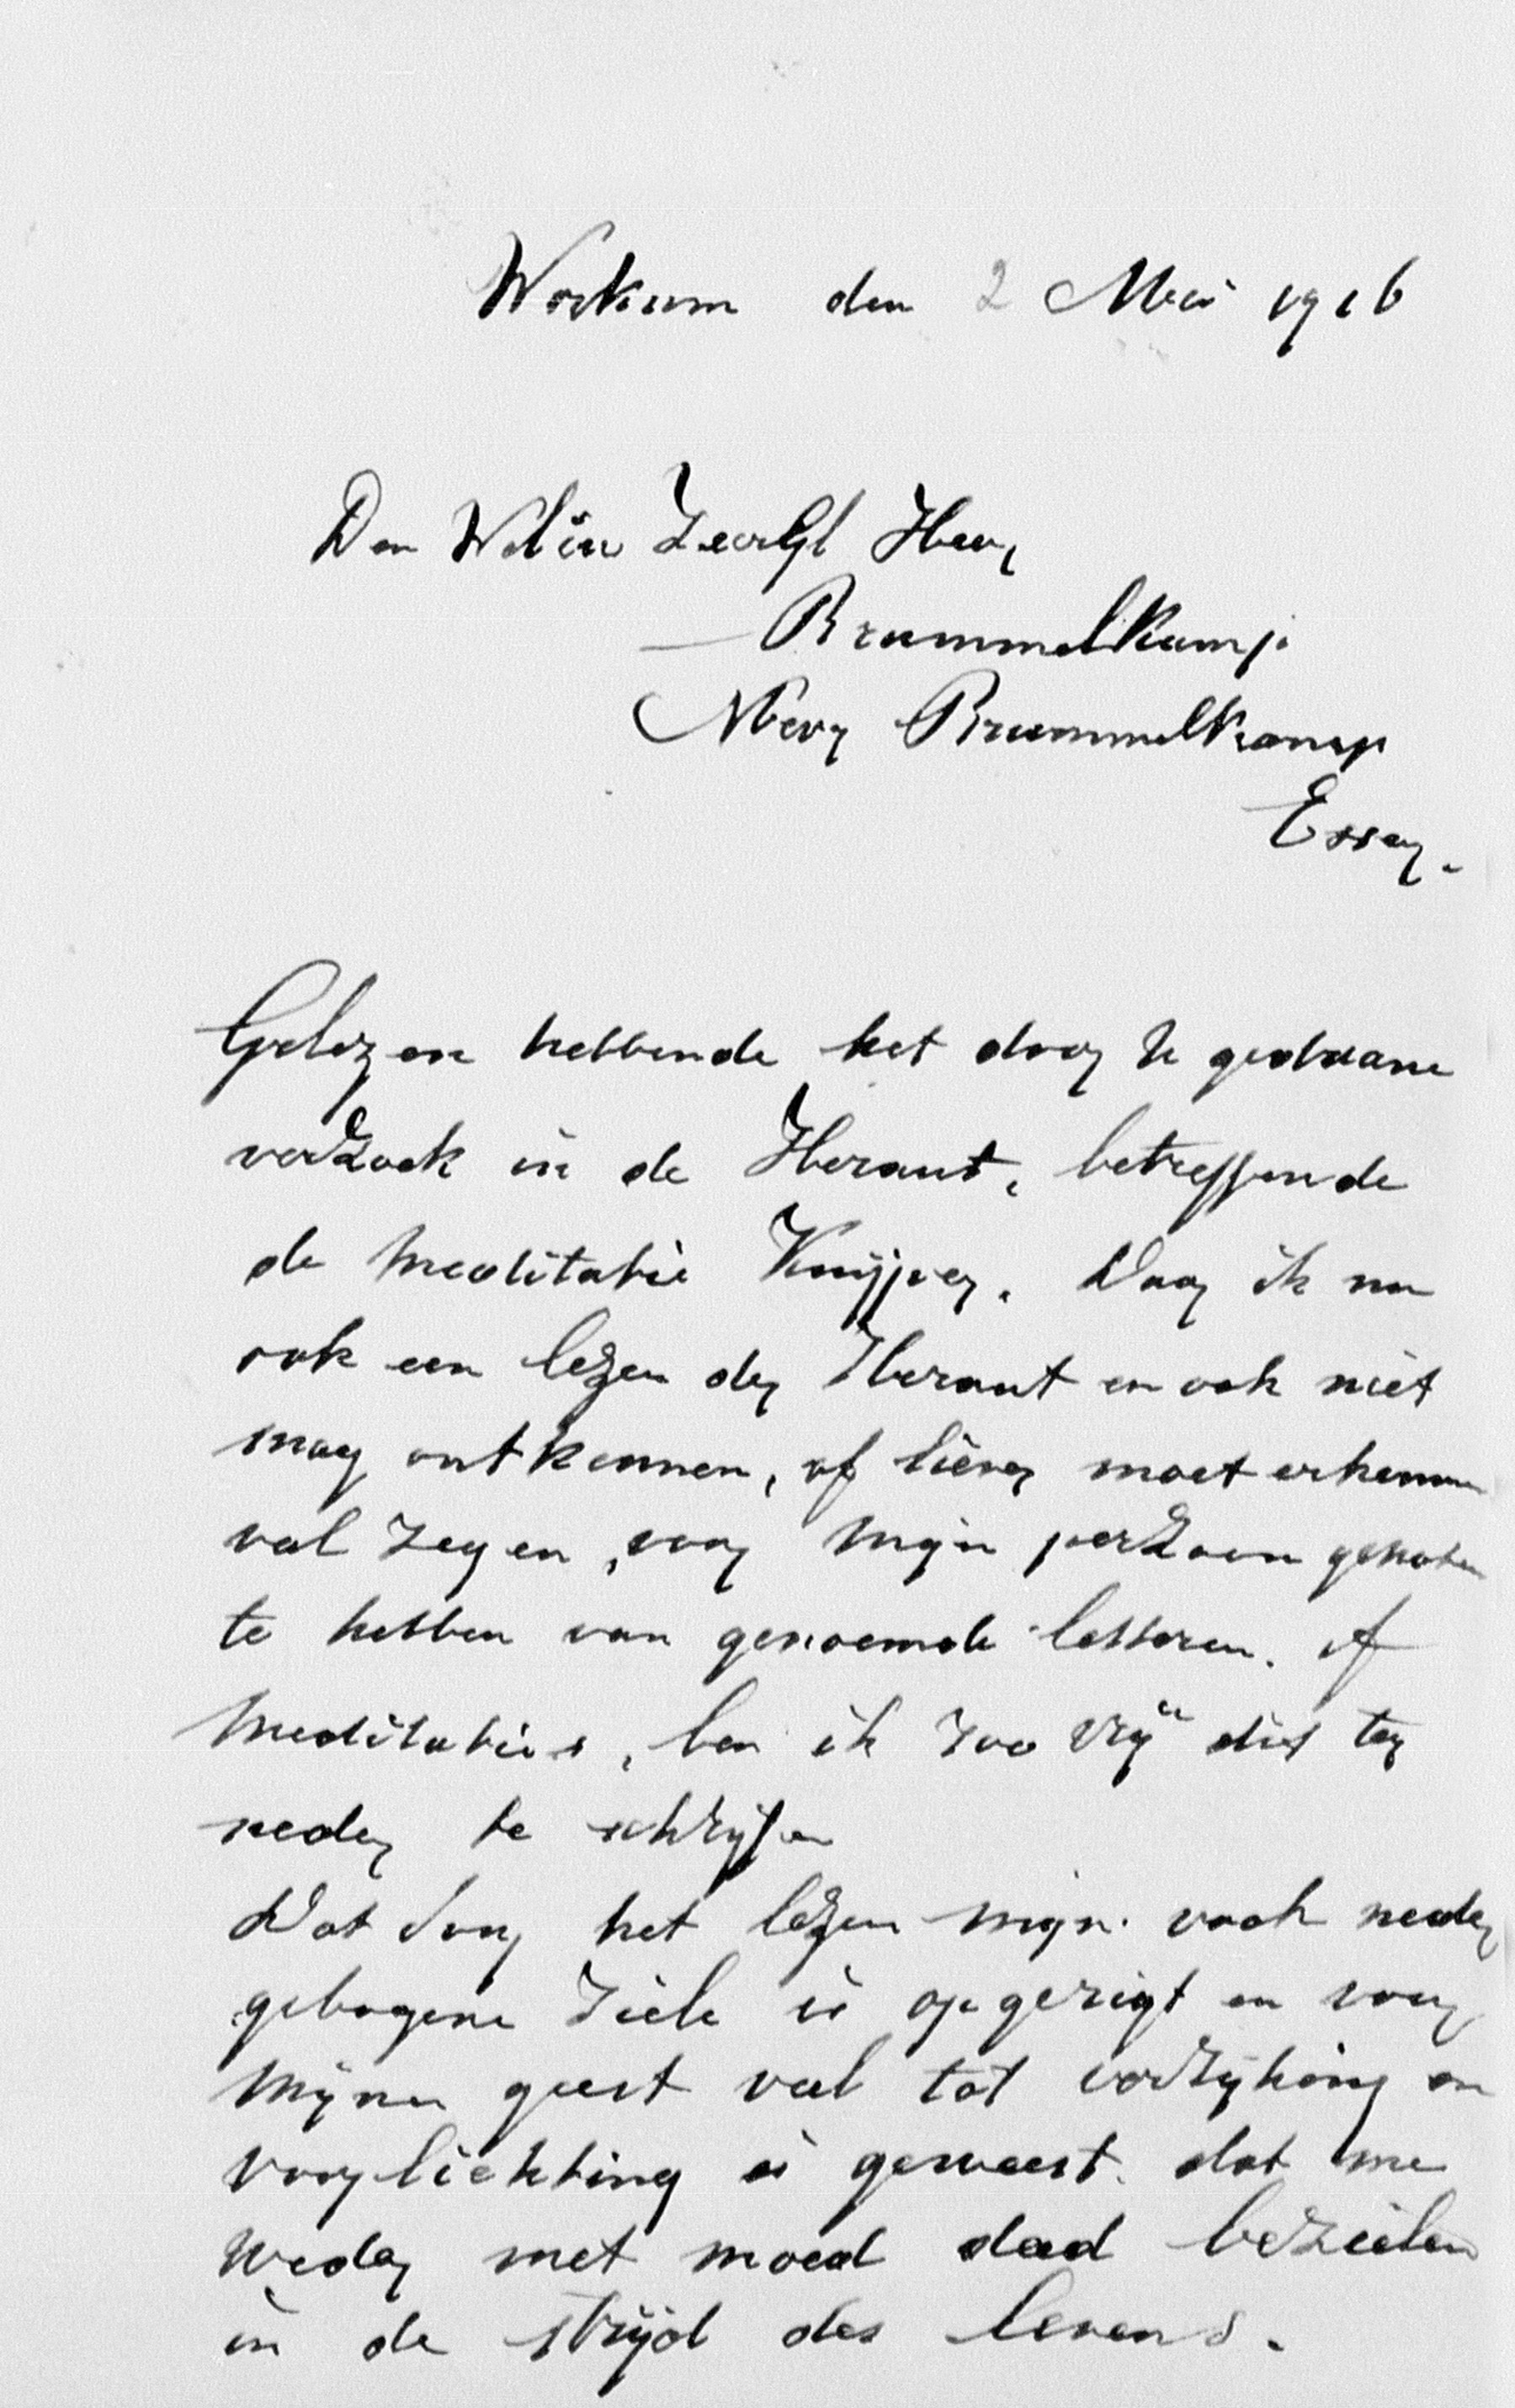 Workum den 2 Mei 1916
Den WelEw ZeerGl Heer
Brummelkamp
Mevr Brummelkamp
Essen.
Gelezen hebbende het door U gedaane
verzoek in de Heraut, betreffende
de Meditatie Kuijper. Daar ik nu
ook een lezer der Heraut en ook niet
mag ontkennen, of liever moet erkennen
veel zegen, voor mijn perzoon genoten
te hebben van genoemde letteren. of
Meditaties, ben ik zoo vrij dit ter
neder te schrijfen
Dat door het lezen mijn vaak neder
gebogene ziele is opgerigt en voor
mijnen geest veel tot verrijking en
voorlichting is geweest. dat me
weder met moed deed bezielen
in de strijd des levens.